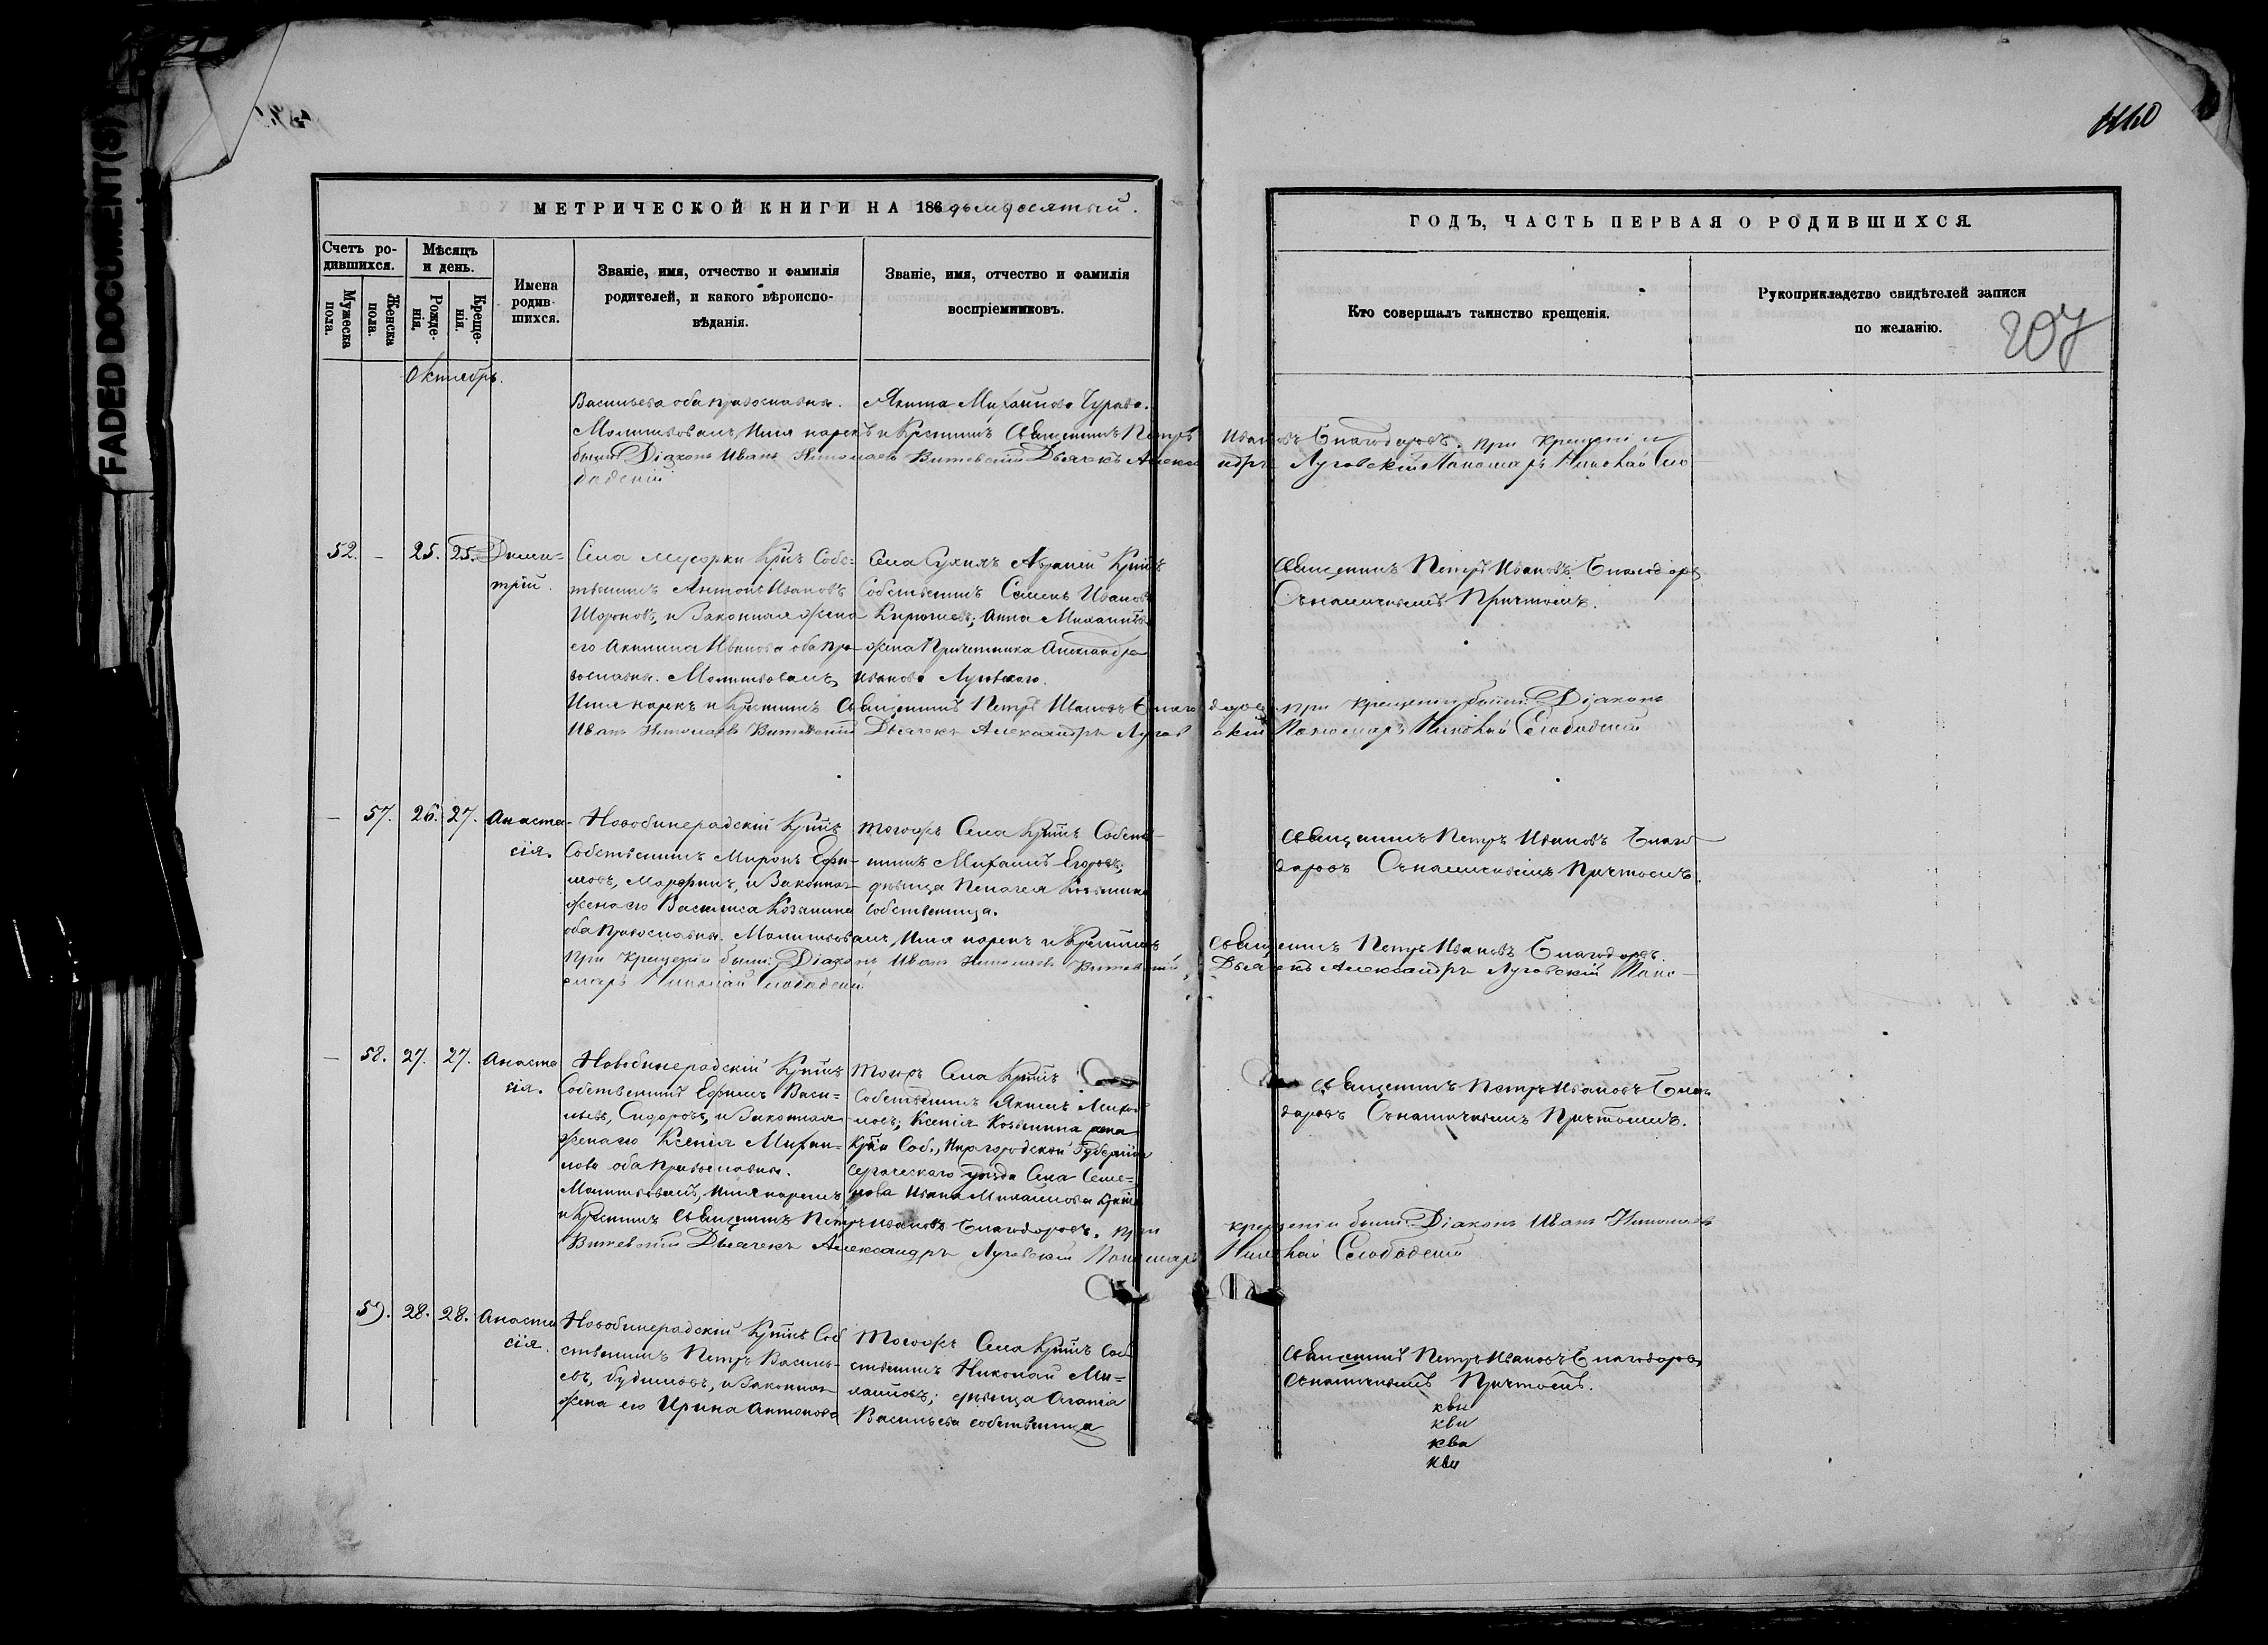 FADED DOCUMENT(S)
МЕТРИЧЕСКОЙ КНИГИ НА 186 дьмдесятый.
Счетъ ро-
дившихся.
Мужеска
пола.
Женска
пола.
Мѣсяцъ
и день.
Рожде-
нія.
Креще-
нія.
Имена
родив-
шихся.
Званіе, имя, отчество и фамилія
родителей, и какого вѣроиспо-
вѣданія.
Званіе, имя, отчество и фамилія
воспріемниковъ.
ГОДЪ, ЧАСТЬ ПЕРВАЯ О РОДИВШИХСЯ.
Кто совершалъ таинство крещенія.
Рукоприкладство свидѣтелей записи
по желанію.
207
Октябрь.
Васильева оба православн.
Молитвовалъ, Имя нарекъ и Крестилъ Священникъ Петръ Ивановъ Благодаровъ. при крещеніи
были Діаконъ Иванъ Николаевъ Витевскій Дьячекъ Александръ Луговскій Пономарь Николай Сло
бодскій
52. - 25. 25. Дими=
трій.
Села Мусорки Крн. Собс=
твенникъ Антонъ Ивановъ
и Законная жена
его Акилина Иванова оба пра
вославн. Молитвовалъ,
Имя нарекъ и Крестилъ Священникъ Петръ Ивановъ Благодаровъ при крещеніи были: Діаконъ
Иванъ Николаевъ Витевскій Дьячекъ Александръ Луговскій Пономарь Николай Слободскій
Села
Собственникъ Семенъ Иванов
Анна Михайлов
жена Причетника Александра
Иванова Луговскаго.
Священникъ Петръ Ивановъ Благодаров
Съ наличнымъ Причтомъ.
— 57. 26. 27. Анаста-
сія.
Новобинарадскій Крнинъ
Собственникъ Миронъ Ефи-
мовъ, и Законная
жена его Василиса Козьмина
оба православн. Молитвовалъ, Имя нарекъ и Крестилъ Священникъ Петръ Ивановъ Благодаровъ.
При крещеніи были: Діаконъ Иванъ Николаевъ Витевскій, Дьячекъ Александръ Луговскій Поно-
марь Николай Слободскій
Тогожъ Села Крнинъ Собств-
нникъ Михаилъ Егоровъ;
дѣвица Пелагея Козьмина
Собственница.
Священникъ Петръ Ивановъ Благо
даровъ Съ наличнымъ Причтомъ.
— 58. 27. 27. Анаста
сія.
Новобинарадскій Крнинъ
Собственникъ Ефимъ Васи-
льевъ, Сидоровъ, и Законная
жена его Ксенія Михаи-
лова оба православн.
Молитвовалъ, Имя нарекъ
и Крестилъ Священникъ Петръ Ивановъ Благодаровъ. при крещеніи были: Діаконъ Иванъ Николаевъ
Витевскій Дьячекъ Александръ Луговскій Пономарь Николай Слободскій
Тогожъ Села Крнинъ
Собственникъ Якимъ
Ксенія Козьмина жена
Крн. Соб., Нижегородской Губерніи
Сергачскаго уѣзда Села Семе=
нова Ивана Михайлова
Священникъ Петръ Ивановъ Благо
даровъ Съ наличнымъ Причтомъ.
59. 28. 28. Анаста
сія.
Новобинарадскій Крнинъ Соб
ственникъ Петръ Василь-
евъ, и Законная
жена его Ирина Антонова
Тогожъ Села Крнинъ Соб
ственникъ Николай Ми=
хайловъ; дѣвица Агапіа
Васильева собственница
Священникъ Петръ Ивановъ Благодаров
Съ наличнымъ Причтомъ.